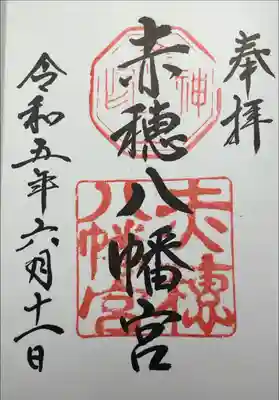 奉拝
赤穂八幡宮
赤穂
八幡宮
令和五年六月十一日